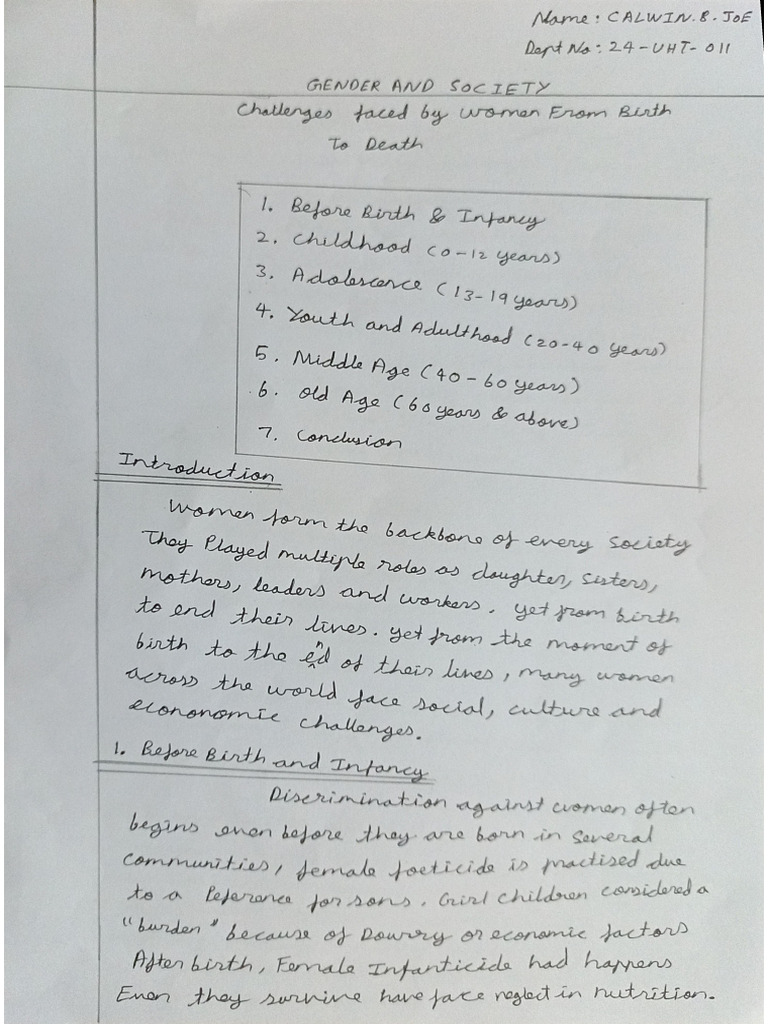 Name: CALWIN.B.JOE
Dept No: 24-UHT-011
GENDER AND SOCIETY
Challenges faced by Women From Birth
To Death
1. Before Birth & Infancy
2. Childhood (0-12 years)
3. Adolescence (13-19 years)
4. Youth and Adulthood (20-40 years)
5. Middle Age (40-60 years)
6. Old Age (60 years & above)
7. Conclusion
Introduction
Women form the backbone of every Society
They Played multiple roles as daughter, Sisters,
mothers, leaders and workers. Yet from birth
to end their lives. Yet from the moment of
birth to the end of their lives, many women
across the world face social, culture and
econonomic challenges.
1. Before Birth and Infancy
Discrimination against women often
begins even before they are born in Several
Communities, female foeticide is practised due
to a Peference for sons. Girl Children considered a
"burden" because of Dowry or economic factors
After birth, Female Infanticide had happens
Even they survive have face neglect in nutrition.